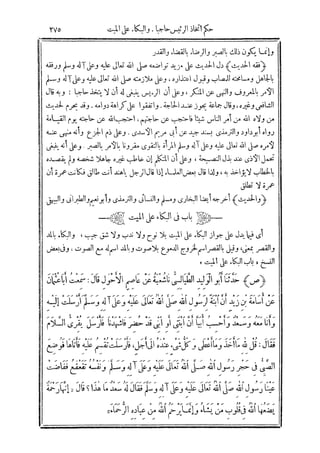 حكم اتخاذ الرئيس حاجبا . والبكاء على الميت ٢٧٥
وإنما يكون ذلك بالصبر والرضا بالقضاء والقدر
﴿فقه الحديث﴾ دل الحديث على مزيد تواضعه صلى الله تعالى عليه وعلى آله وسلم ورفقه
بالجاهل ومسامحته للمصاب وقبول اعتذاره، وعلى ملازمته صلى الله تعالى عليه وعلى آله وسلم
الأمر بالمعروف والنهى عن المنكر، وعلى أن الرئيس ينبغى له أن لا يتخذ حاجبا : وبه قال
الشافعى وغيره، وقال جماعة يجوز عند الحاجة. واتفقوا على كراهة دوامه. وقد يحرم لحديث
من ولاه الله من أمر الناس شيئا فاحتجب عن حاجتهم، احتجب الله عن حاجته يوم القيامة
رواه أبو داود والترمذى بسند جيد عن أبى مريم الأسدى. وعلى ذم الجزع وأنه منهى عنه
لأمره صلى الله تعالى عليه وعلى آله وسلم المرأة بالتقوى مقرونا بالأمر بالصبر. وعلى أنه ينبغى
تحمل الأذى عند بذل النصيحة، وعلى أن المنكر إن خاطب غيره جاهلا شخصه ولم يقصده
بالخطاب لا يؤاخذ به، ولذا قال بعض العلماء إذا قال الرجل ياهند أنت طالق فكانت عمرة أن
عمرة لا تطلق
﴿والحديث﴾ أخرجه أيضا البخارى ومسلم والنسائى والترمذى وأبو نعيم والطبرانى والبيهقى
باب فى البكاء على الميت
أى فيما يدل على جواز البكاء على الميت بلا نوح ولا ندب ولا شق جيب، والبكاء بالمد
والقصر بمعنى، وقيل بالقصر اسم لخروج الدموع بلا صوت وبالمد اسم له مع الصوت. وفى بعض
النسخ « باب البكاء على الميت »
﴿ص﴾ حَدَّثَنَا أَبُو الْوَلِيدِ الطَّيَالِسِىُّ نَا شُعْبَةُ عَنْ عَاصِمٍ الْأَحْوَلِ قَالَ: سَمِعْتُ أَبَا عُثْمَانَ
عَنْ أُسَامَةَ بْنِ زَيْدٍ أَنَّ ابْنَةً لِرَسُولِ اللهِ صَلَّى اللهُ تَعَالَى عَلَيْهِ وَعَلَى آلِهِ وَسَلَّمَ أَرْسَلَتْ إِلَيْهِ
وَأَنَا مَعَهُ وَسَعْدٌ وَأَحْسَبُ أُبَيًّا أَنَّ ابْنِى أَوِ ابْنَتِى قَدْ حُضِرَ فَاشْهَدْنَا فَأَرْسَلَ يُقْرِئُ السَّلَامَ
فَقَالَ: قُلْ لِلهِ مَا أَخَذَ وَمَا أَعْطَى وَكُلُّ شَىْءٍ عِنْدَهُ إِلَى أَجَلٍ، فَأَرْسَلَتْ تُقْسِمُ عَلَيْهِ فَأَتَاهَا فَوُضِعَ
الصَّبِىُّ فِى حِجْرِ رَسُولِ اللهِ صَلَّى اللهُ تَعَالَى عَلَيْهِ وَعَلَى آلِهِ وَسَلَّمَ وَنَفْسُهُ تَقَعْقَعُ فَفَاضَتْ
عَيْنَا رَسُولِ اللهِ صَلَّى اللهُ تَعَالَى عَلَيْهِ وَعَلَى آلِهِ وَسَلَّمَ فَقَالَ لَهُ سَعْدٌ مَا هَذَا؟ قَالَ: إِنَّهَا رَحْمَةٌ
يَضَعُهَا اللهُ فِى قُلُوبِ مَنْ يَشَاءُ وَإِنَّمَا يَرْحَمُ اللهُ مِنْ عِبَادِهِ الرُّحَمَاءَ